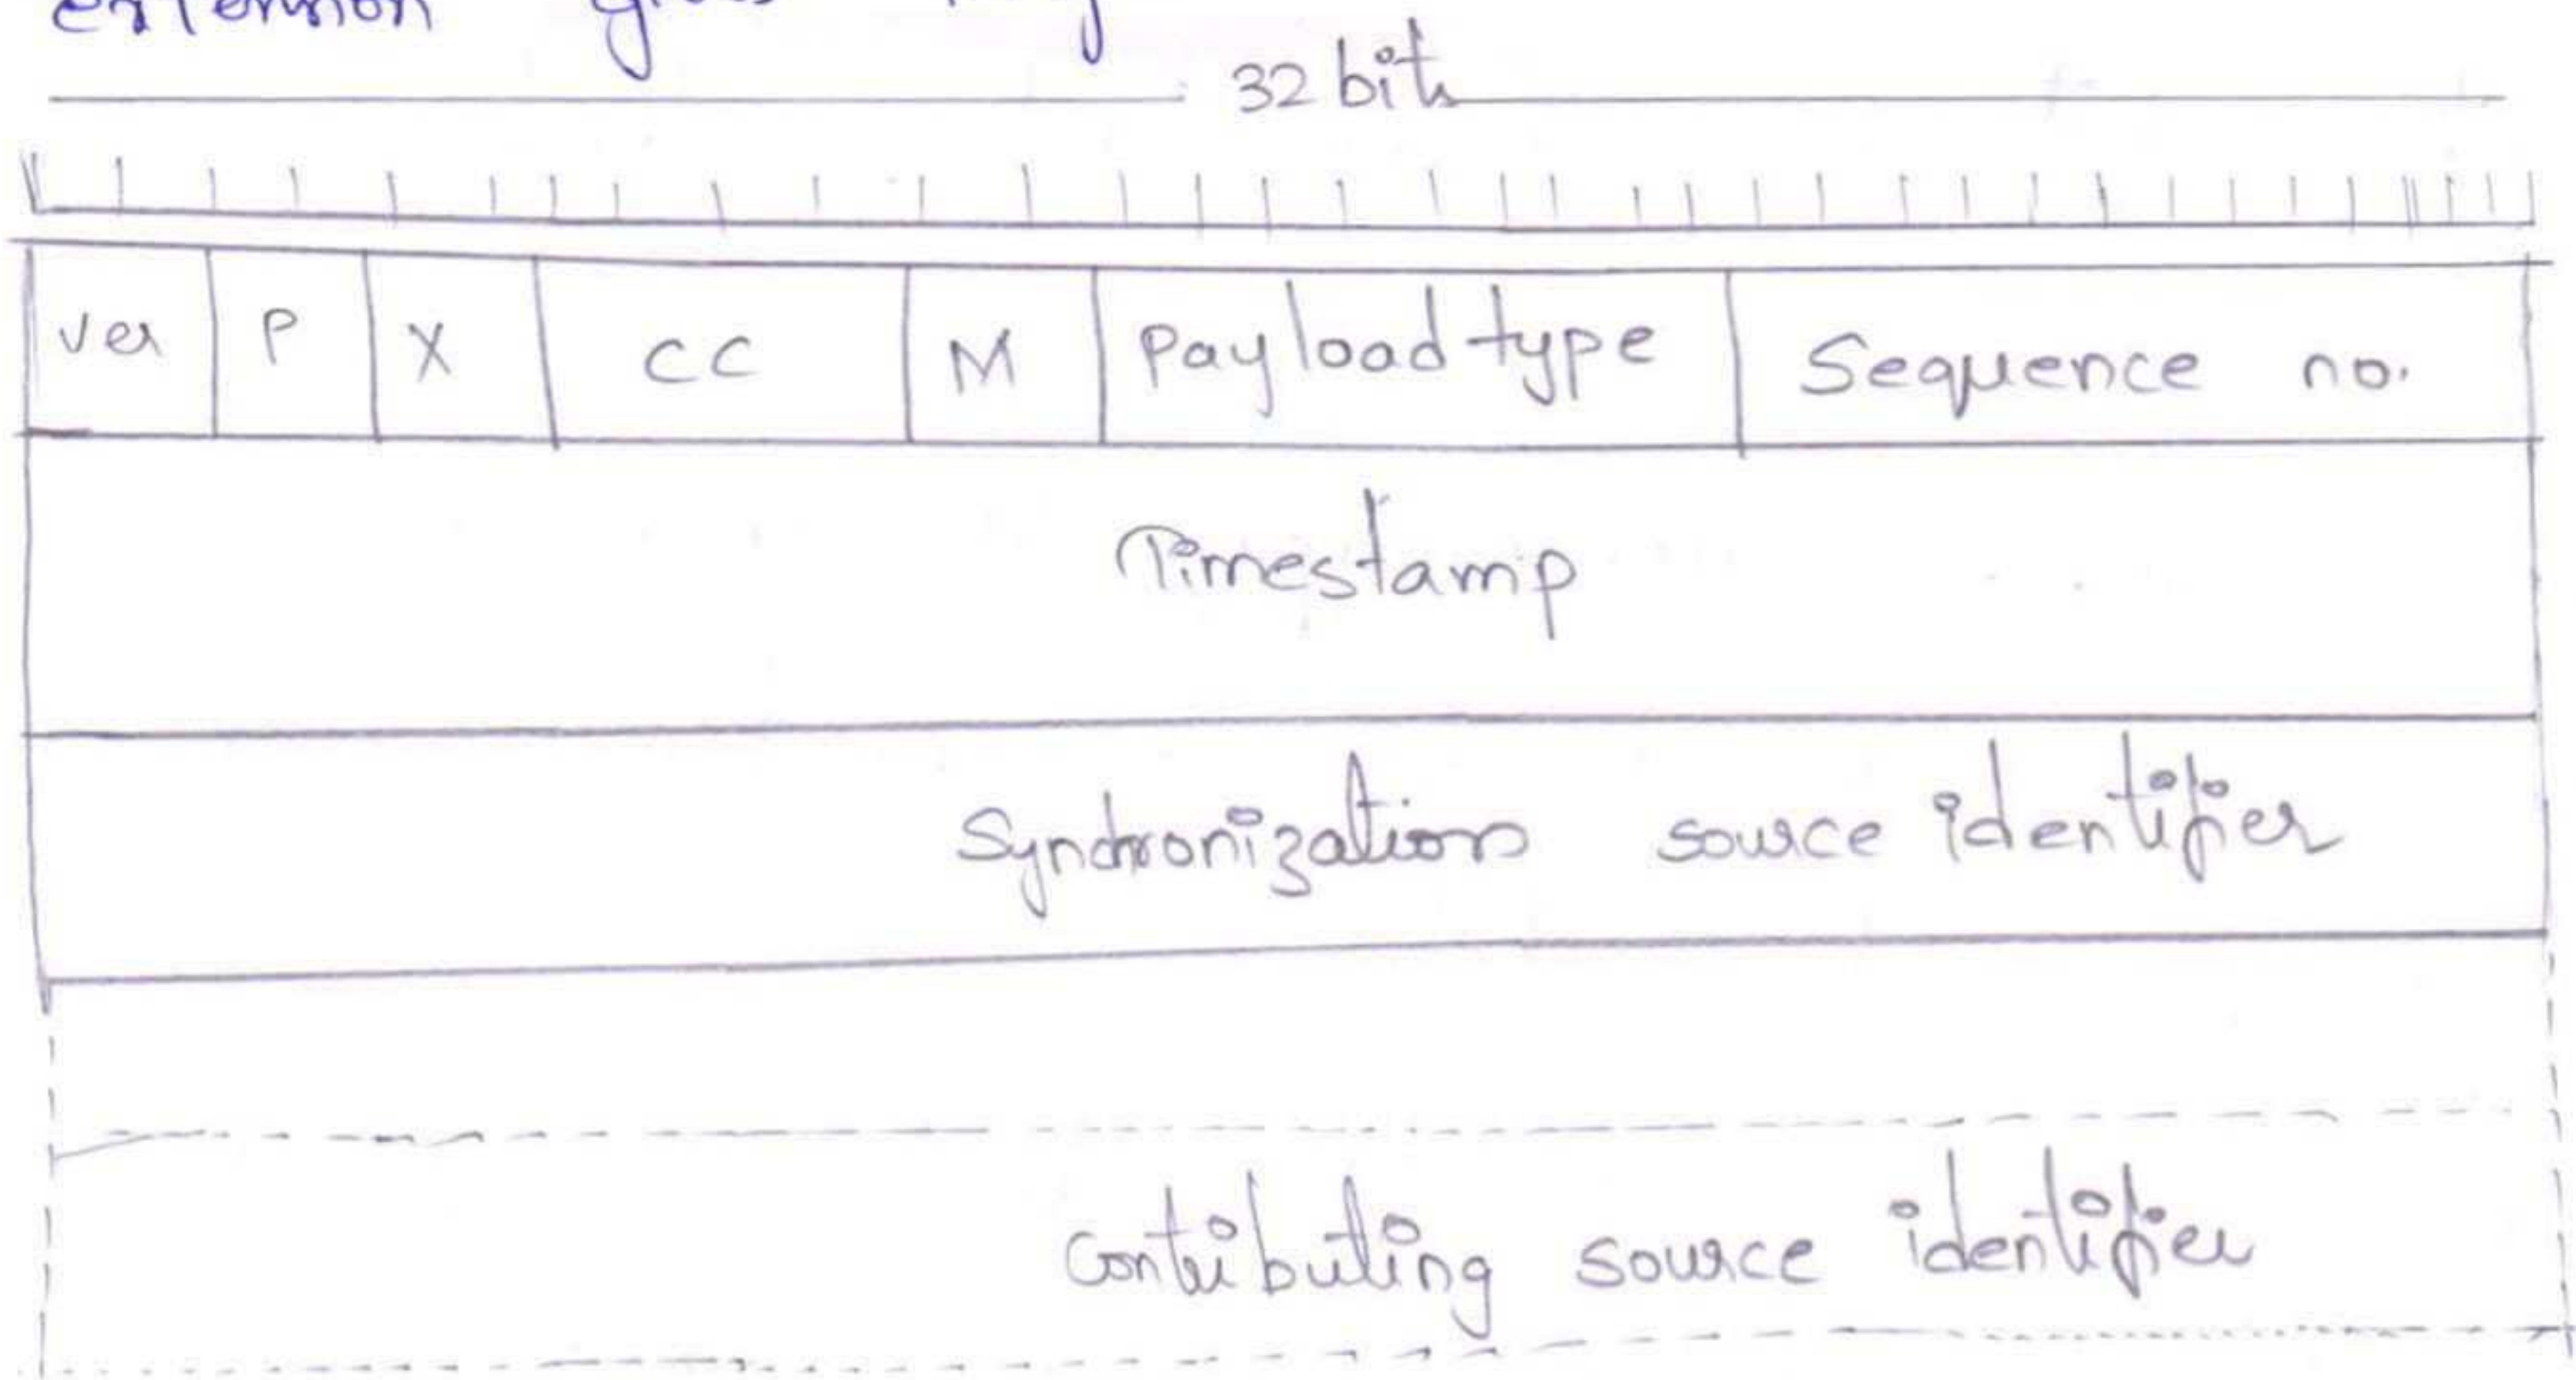 extension
32 bits
Ver P X CC M Payload type Sequence no.
Timestamp
Synchronization source identifier
Contributing source identifier